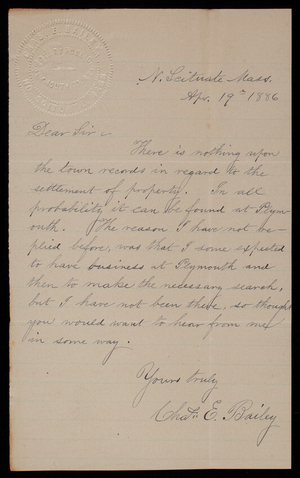 N. Scituate Mass.
Apr. 19th 1886
Dear Sir,
There is nothing upon
the town records in regard to the
settlement of property. In all
probability it can be found at Plym-
outh. The reason I have not re-
plied before, was that I some expected
to have business at Plymouth and
then to make the necessary search,
but I have not been there, so thought
you would want to hear from me
in some way.
Yours truly
Chas. E. Bailey